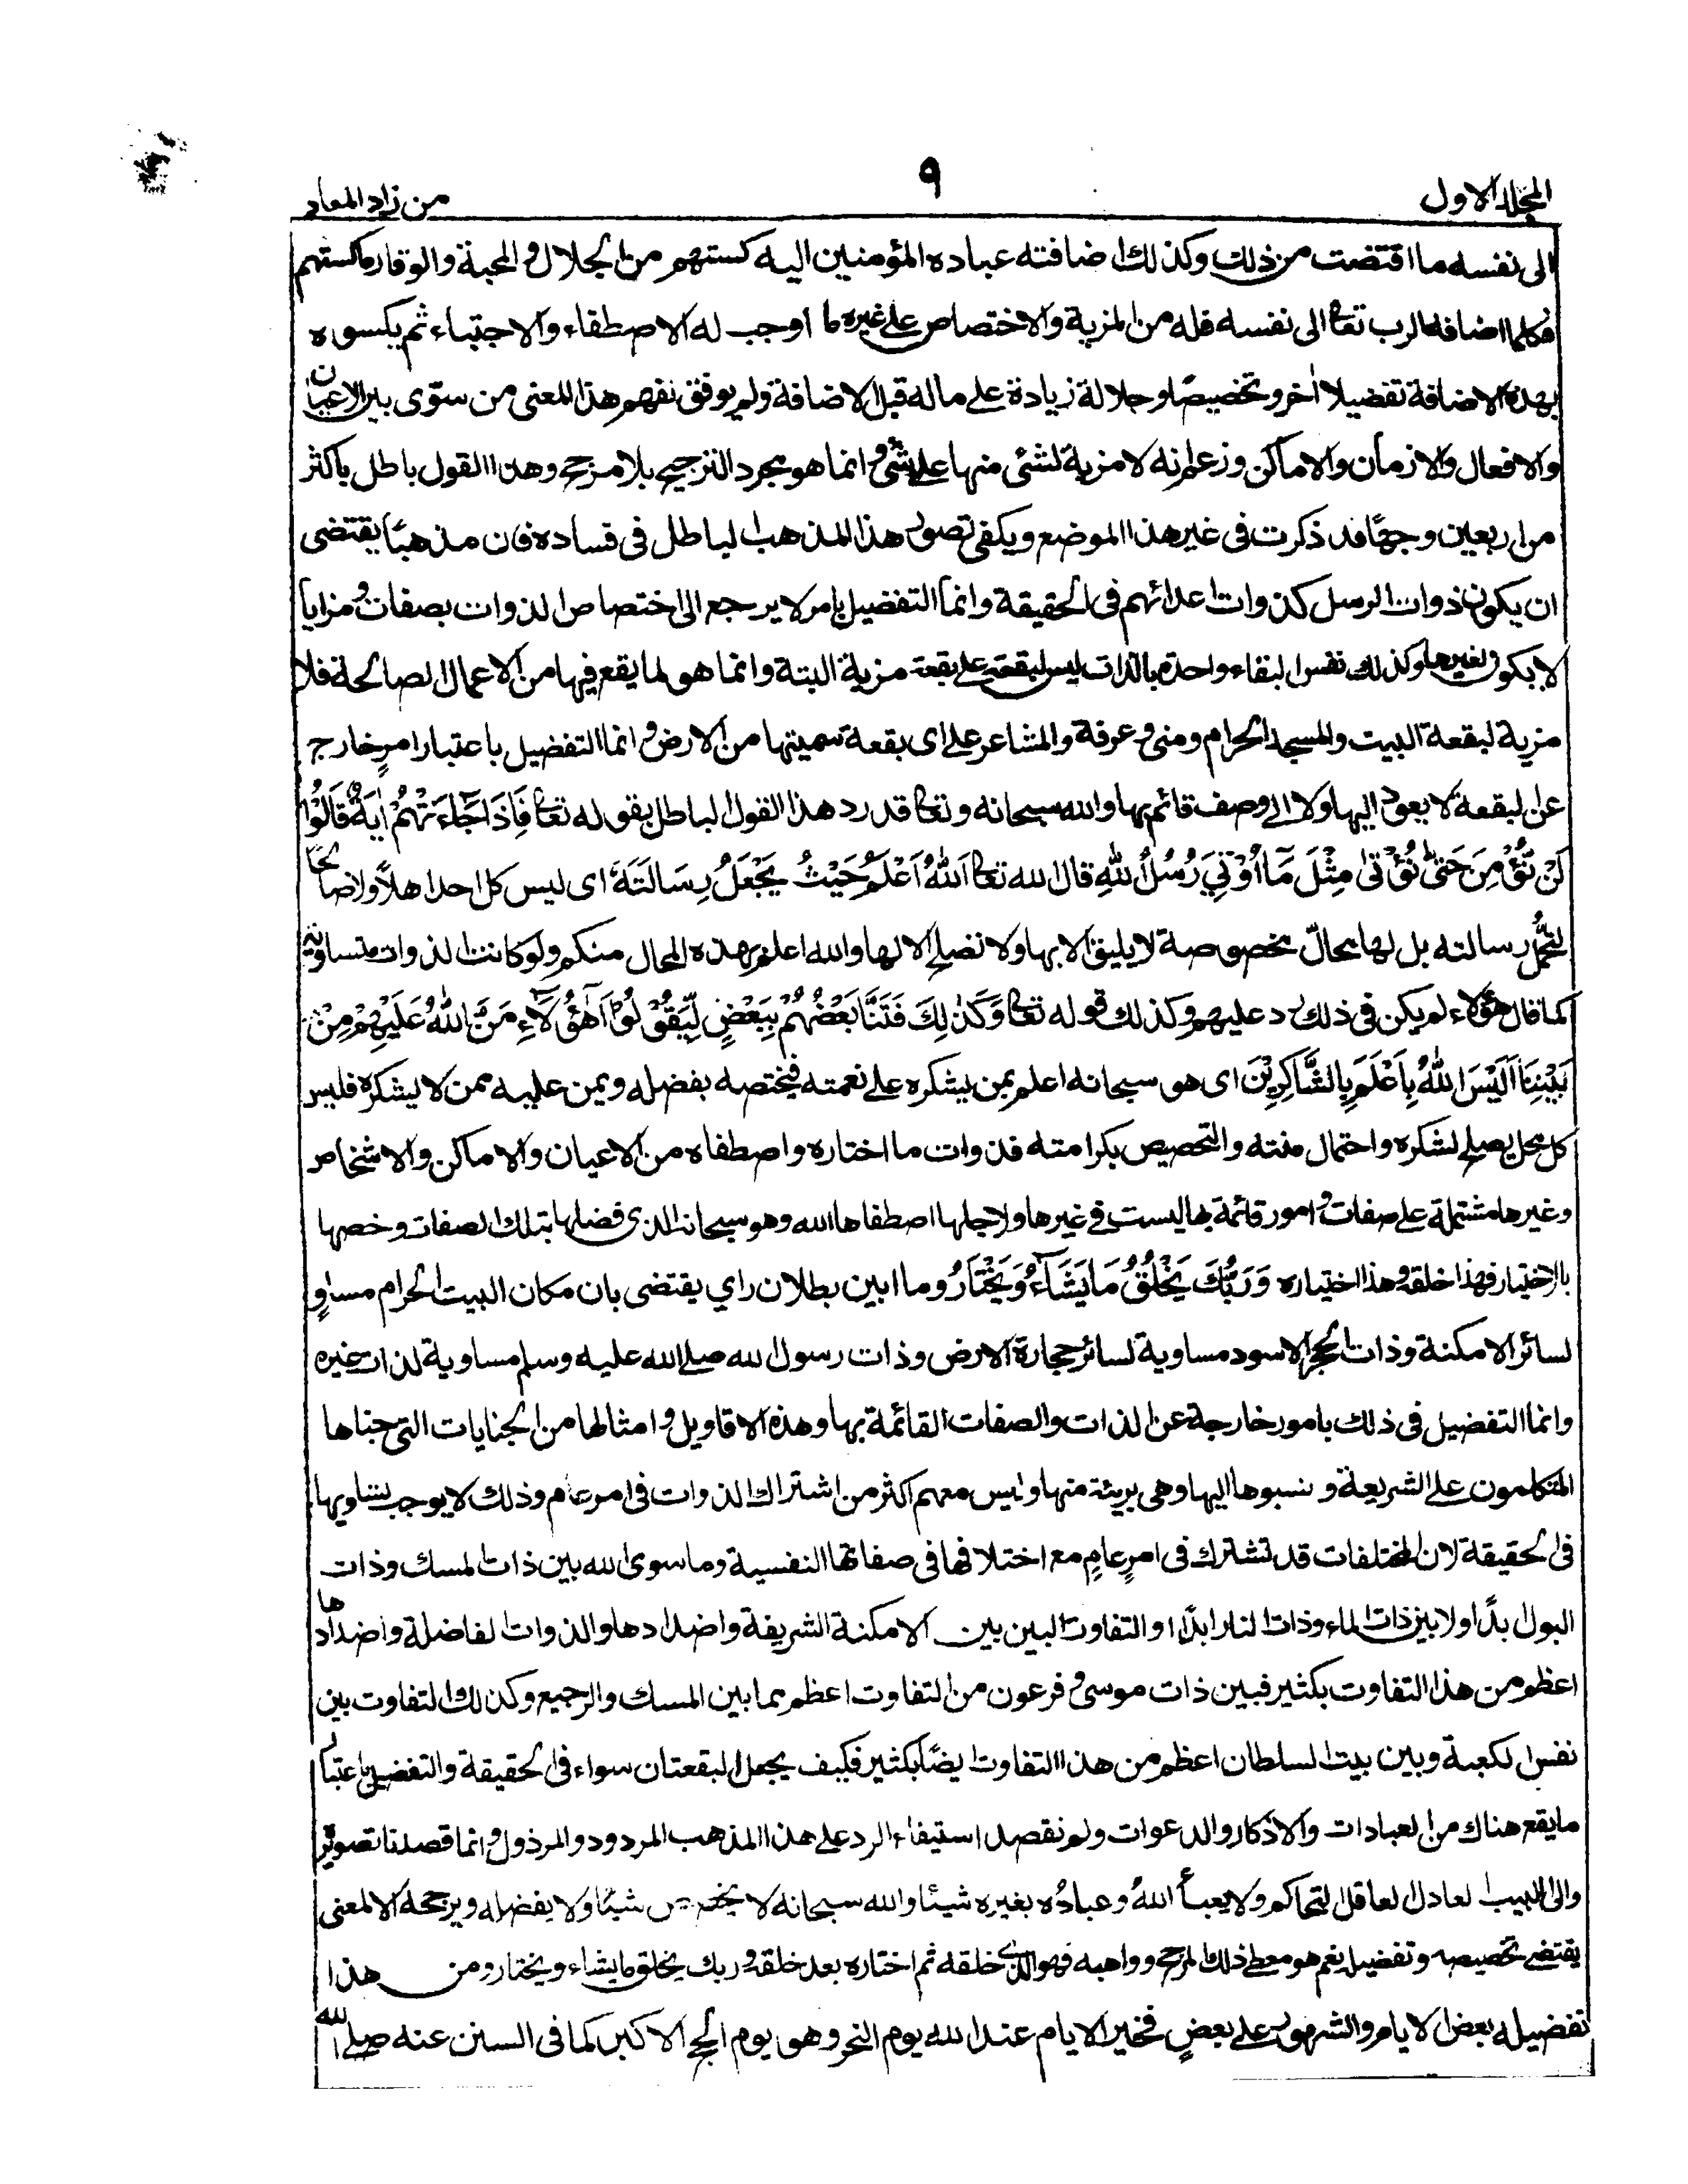 المجلد الاول
٩
من زاد المعاد
الى نفسه ما اقتضت من ذلك وكذلك اضافته عباده المؤمنين اليه كستهم من الجلال و المحبة والوقار ما كستهم
فكلما اضافه الرب تعا الى نفسه فله من المزية والاختصاص على غيره ما اوجب له الاصطفاء والاجتباء ثم يكسوه
بهذه الاضافة تفضيلا اخر وتخصيصًا وجلالة زيادة على ماله قبل الاضافة ولم يوفق لفهم هذا المعنى من سوّى بين الاعيان
والافعال والازمان والاماكن وزعم انه لا مزية لشئ منها على شئ و انما هو مجرد الترجيح بلا مرجح وهذا القول باطل باكثر
من اربعين وجهًا قد ذكرت فى غير هذا الموضع ويكفى تصور هذا المذهب الباطل فى فساده فان مذهبًا يقتضى
ان يكون ذوات الرسل كذوات اعدائهم فى الحقيقة وانما التفضيل بامر لا يرجع الى اختصاص الذوات بصفات و مزايا
لا يكون لغيرها وكذلك نفس البقاء واحدة بالذات ليس لبقعة على بقعة مزية البتة وانما هو لما يقع فيها من الاعمال الصالحة فلا
مزية لبقعة البيت والمسجد الحرام ومنى و عرفة والمشاعر على اى بقعة سميتها من الارض و انما التفضيل باعتبار امرٍ خارج
عن البقعة لا يعود اليها ولا الى وصف قائم بها والله سبحانه وتعا قد رد هذا القول الباطل بقوله تعا فَاِذَا جَآءَتْهُمْ اٰيَةٌ قَالُوْا
لَنْ نُّؤْمِنَ حَتّٰى نُؤْتٰى مِثْلَ مَآ اُوْتِيَ رُسُلُ اللهِ قال الله تعا اَللهُ اَعْلَمُ حَيْثُ يَجْعَلُ رِسَالَتَهٗ اى ليس كل احد اهلاً ولا صالحًا
لتحمُّل رسالته بل لها محالّ مخصوصة لا يليق الا بها ولا تصلح الا لها والله اعلم بهذه المحال منكم ولو كانت الذوات متساوية
كما قال هؤلاء لم يكن فى ذلك رد عليهم وكذلك قوله تعا وَكَذٰلِكَ فَتَنَّا بَعْضَهُمْ بِبَعْضٍ لِّيَقُوْلُوْٓا اَهٰٓؤُلَآءِ مَنَّ اللهُ عَلَيْهِمْ مِنْ
بَيْنِنَا اَلَيْسَ اللهُ بِاَعْلَمَ بِالشَّاكِرِيْنَ اى هو سبحانه اعلم بمن يشكره على نعمته فيختصه بفضله ويمن عليه ممن لا يشكره فليس
كل محل يصلح لشكره واحتمال منته والتخصيص بكرامته فذوات ما اختاره واصطفاه من الاعيان والاماكن والاشخاص
وغيرها مشتملة على صفات و امور قائمة بها ليست فى غيرها ولاجلها اصطفاها الله وهو سبحانه الذى فضلها بتلك الصفات وخصها
بالاختيار فهذا خلقه و هذا اختياره وَرَبُّكَ يَخْلُقُ مَا يَشَآءُ وَيَخْتَارُ وما ابين بطلان راي يقتضى بان مكان البيت الحرام مساوٍ
لسائر الامكنة وذات الحجر الاسود مساوية لسائر حجارة الارض وذات رسول الله صلى الله عليه وسلم مساوية لذات غيره
وانما التفضيل فى ذلك بامور خارجة عن الذات والصفات القائمة بها وهذه الاقاويل و امثالها من الجنايات التى جناها
المتكلمون على الشريعة ونسبوها اليها وهى بريئة منها وليس معهم اكثر من اشتراك الذوات فى امر عام وذلك لا يوجب تساويها
فى الحقيقة لان المختلفات قد تشترك فى امرٍ عامٍ مع اختلافها فى صفاتها النفسية وما سوى الله بين ذات المسك وذات
البول ابدًا ولا بين ذات الماء وذات النار ابدًا و التفاوت البين بين الامكنة الشريفة واضدادها والذوات الفاضلة واضدادها
اعظم من هذا التفاوت بكثير فبين ذات موسى و فرعون من التفاوت اعظم مما بين المسك والرجيع وكذلك التفاوت بين
نفس الكعبة وبين بيت السلطان اعظم من هذا التفاوت ايضًا بكثير فكيف يجعل البقعتان سواء فى الحقيقة والتفضيل باعتبار
ما يقع هناك من العبادات والاذكار والدعوات ولم نقصد استيفاء الرد على هذا المذهب المردود والمرذول و انما قصدنا تصويره
والى اللبيب العادل العاقل التحاكم ولا يعبأ اللهُ وعبادُه بغيره شيئا والله سبحانه لا يخصص شيئًا ولا يفضله ويرجحه الا لمعنى
يقتضى تخصيصه وتفضيله نعم هو معطى ذلك المرجح وواهبه فهو الذى خلقه ثم اختاره بعد خلقه و ربك يخلق ما يشاء ويختار ومن هذا
تفضيله بعض الايام والشهور على بعضٍ فخير الايام عند الله يوم النحر وهو يوم الحج الاكبر كما فى السنن عنه صلى الله